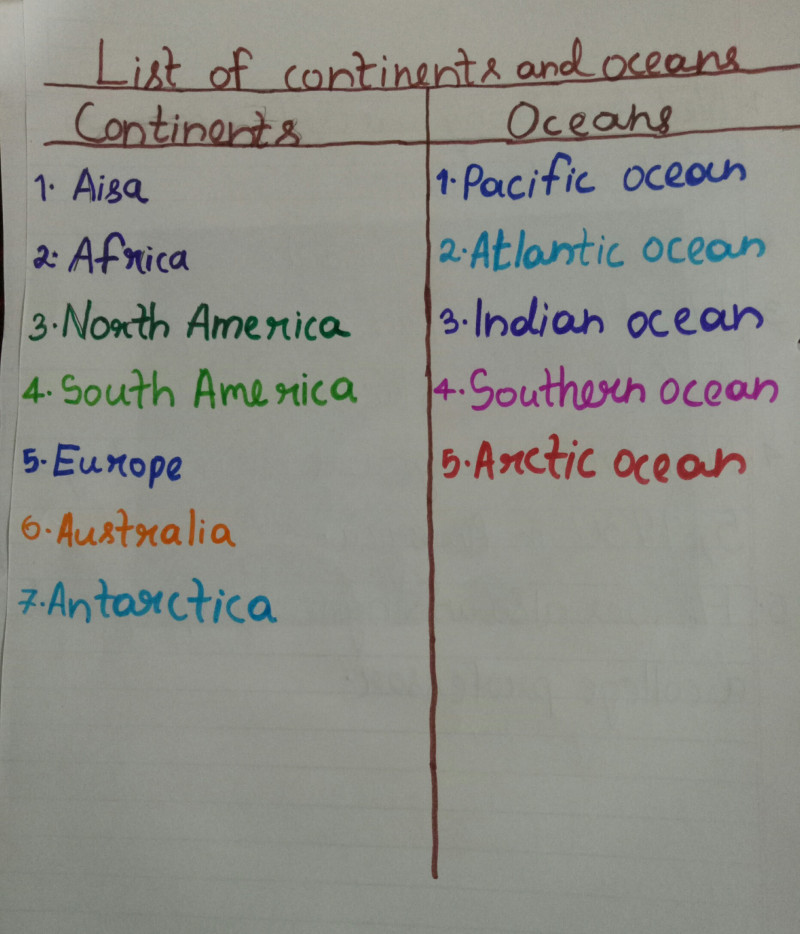 List of continents and oceans
Continents
Oceans
1. Aisa
2. Africa
3. North America
4. South America
5. Europe
6. Australia
7. Antarctica
1. Pacific ocean
2. Atlantic ocean
3. Indian ocean
4. Southern ocean
5. Arctic ocean